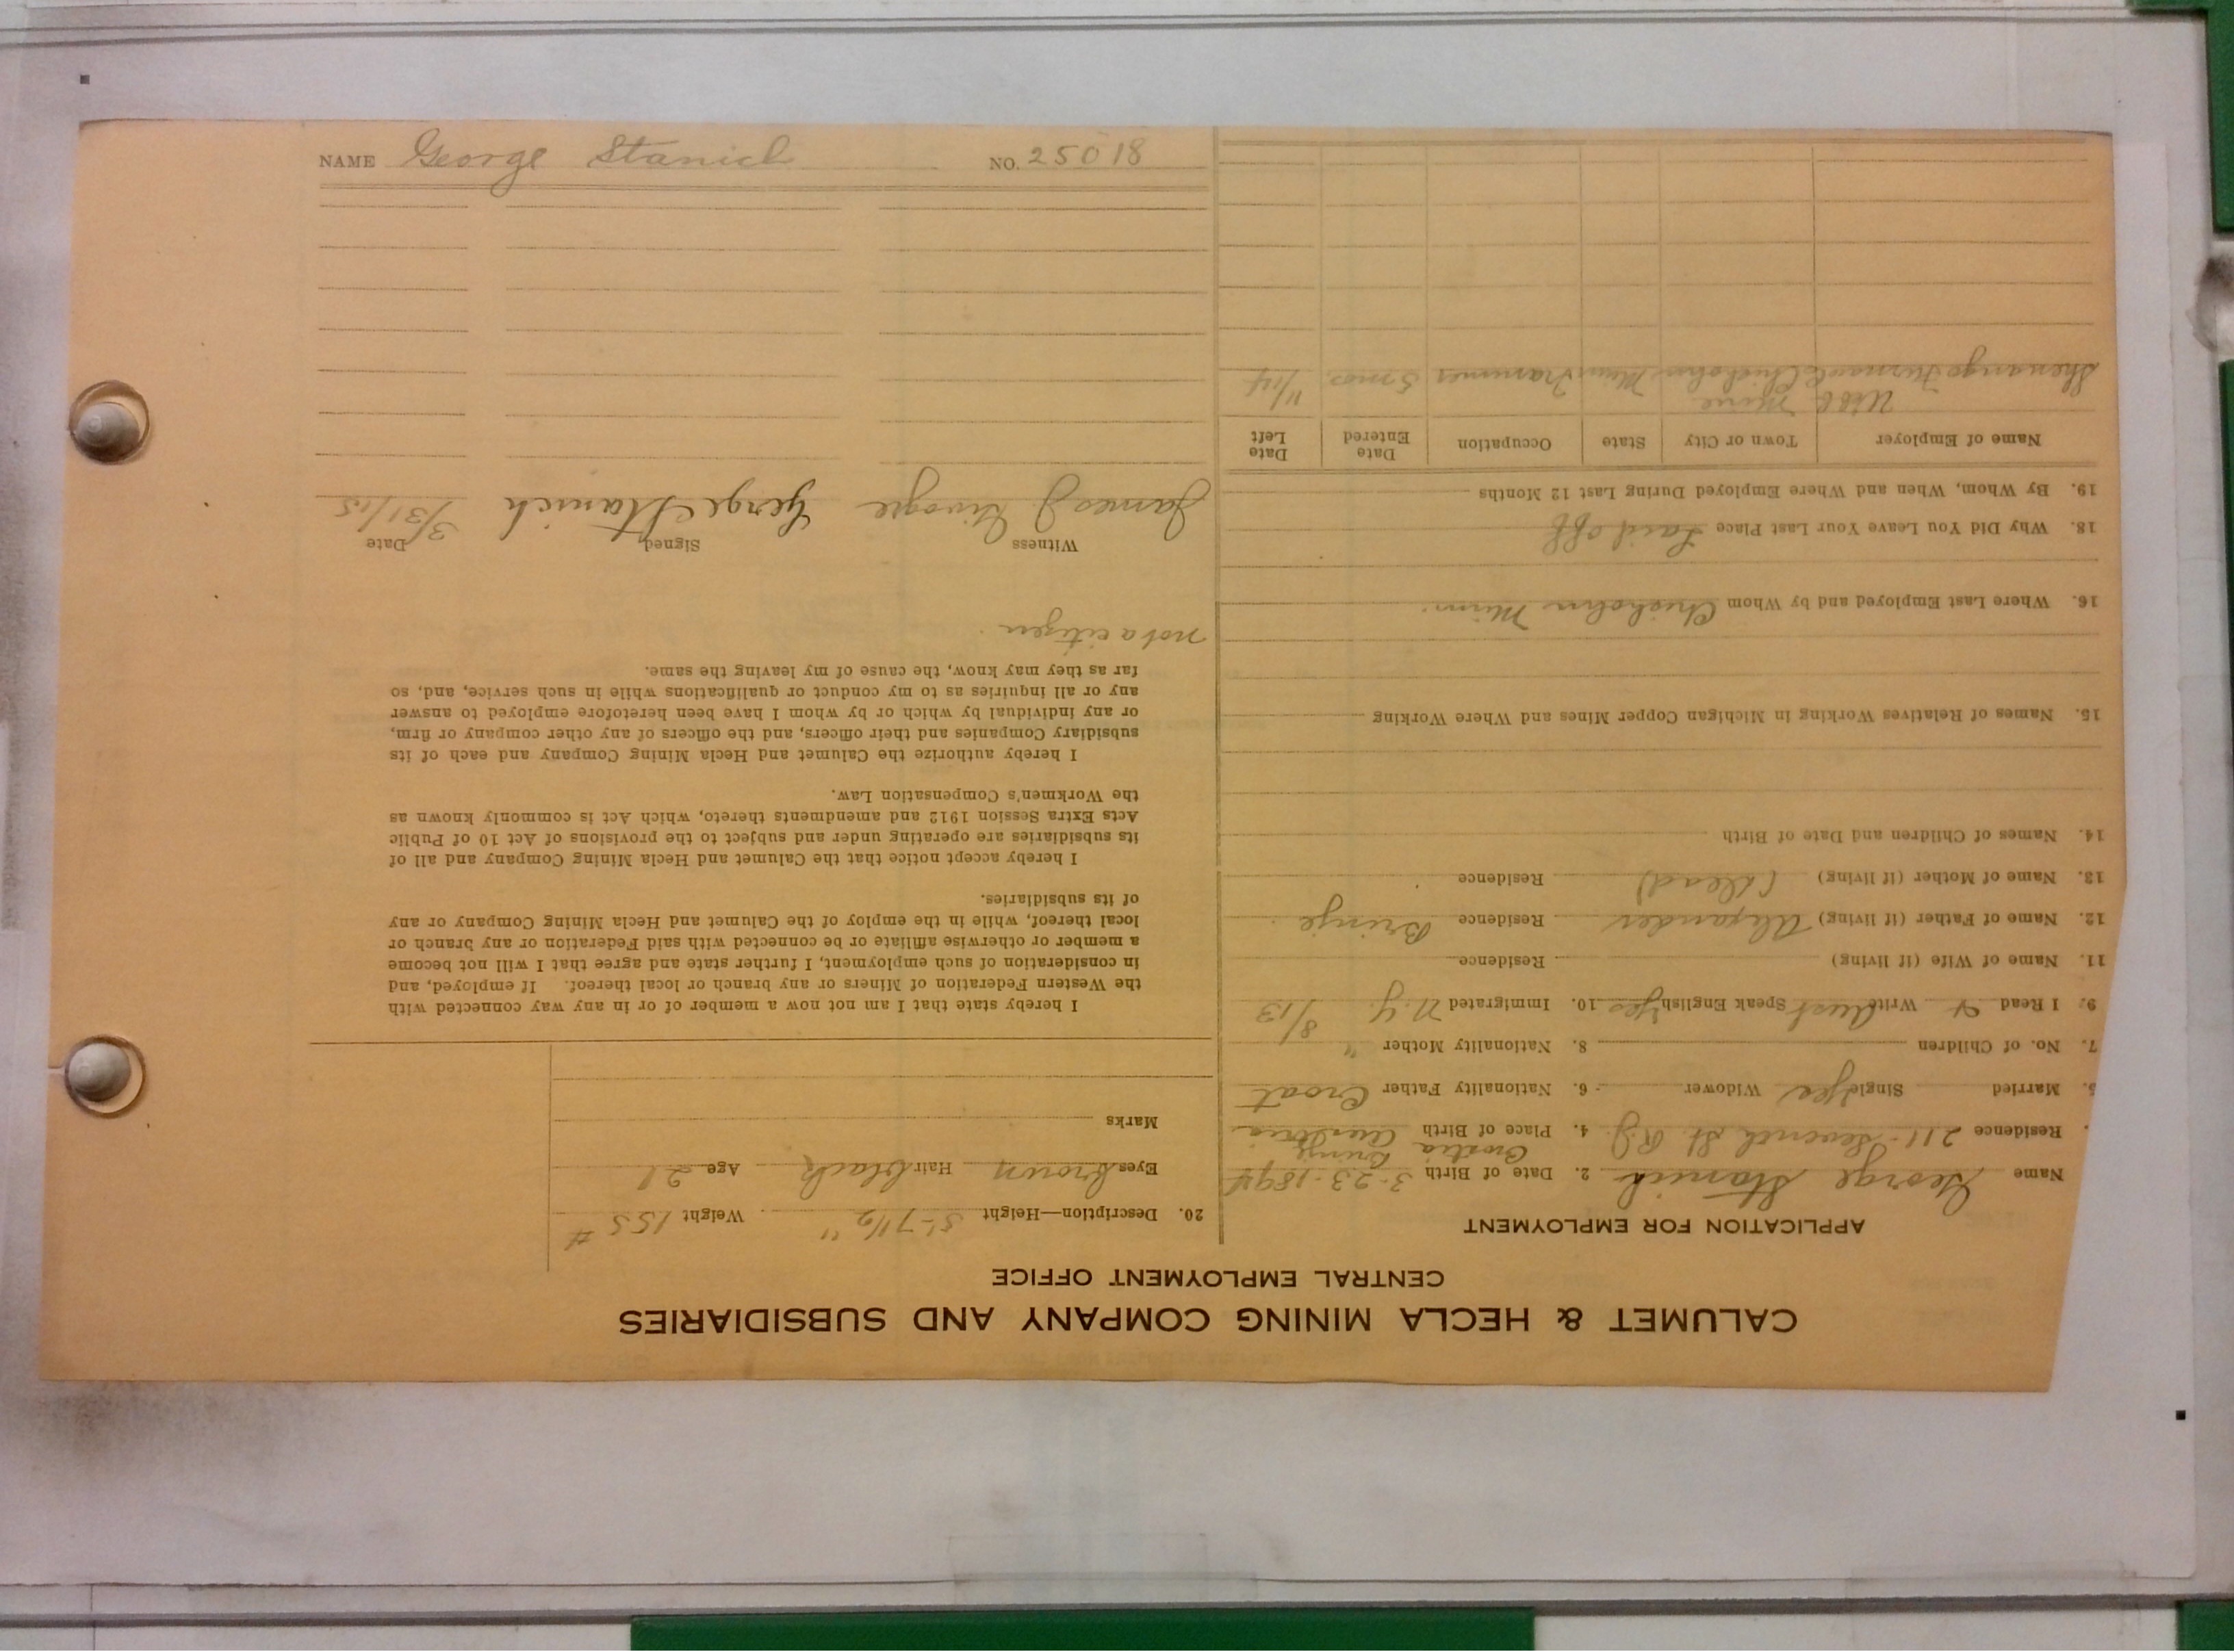 NAME George Stanich NO. 25018
CALUMET & HECLA MINING COMPANY AND SUBSIDIARIES
CENTRAL EMPLOYMENT OFFICE
APPLICATION FOR EMPLOYMENT
Name George Stanich 2. Date of Birth 3-23-1894
Brinje
Residence 211-Seventh St. R.J. 4. Place of Birth Croatia Austria
5. Married Single yes Widower 6. Nationality Father Croat
7. No. of Children 8. Nationality Mother "
9. I Read & Write Aust Speak English yes 10. Immigrated N.Y. 8/13
11. Name of Wife (if living) Residence
12. Name of Father (if living) Alexander Residence Brinje
13. Name of Mother (if living) (dead) Residence
14. Names of Children and Date of Birth
15. Names of Relatives Working in Michigan Copper Mines and Where Working
16. Where Last Employed and by Whom Chisholm Minn.
18. Why Did You Leave Your Last Place Laid off
19. By Whom, When and Where Employed During Last 12 Months
Name of Employer Town or City State Occupation Date Entered Date Left
Mine
Shenango Furnace Chisholm Minn Trammer 5 mos. 11/14
20. Description—Height 5'-7 1/2" Weight 155 #
Eyes brown Hair black Age 21
Marks
I hereby state that I am not now a member of or in any way connected with
the Western Federation of Miners or any branch or local thereof. If employed, and
in consideration of such employment, I further state and agree that I will not become
a member or otherwise affiliate or be connected with said Federation or any branch or
local thereof, while in the employ of the Calumet and Hecla Mining Company or any
of its subsidiaries.
I hereby accept notice that the Calumet and Hecla Mining Company and all of
its subsidiaries are operating under and subject to the provisions of Act 10 of Public
Acts Extra Session 1912 and amendments thereto, which Act is commonly known as
the Workmen's Compensation Law.
I hereby authorize the Calumet and Hecla Mining Company and each of its
subsidiary Companies and their officers, and the officers of any other company or firm,
or any individual by which or by whom I have been heretofore employed to answer
any or all inquiries as to my conduct or qualifications while in such service, and, so
far as they may know, the cause of my leaving the same.
not a citizen.
Witness Signed Date
James J. George Stanich 3/31/15